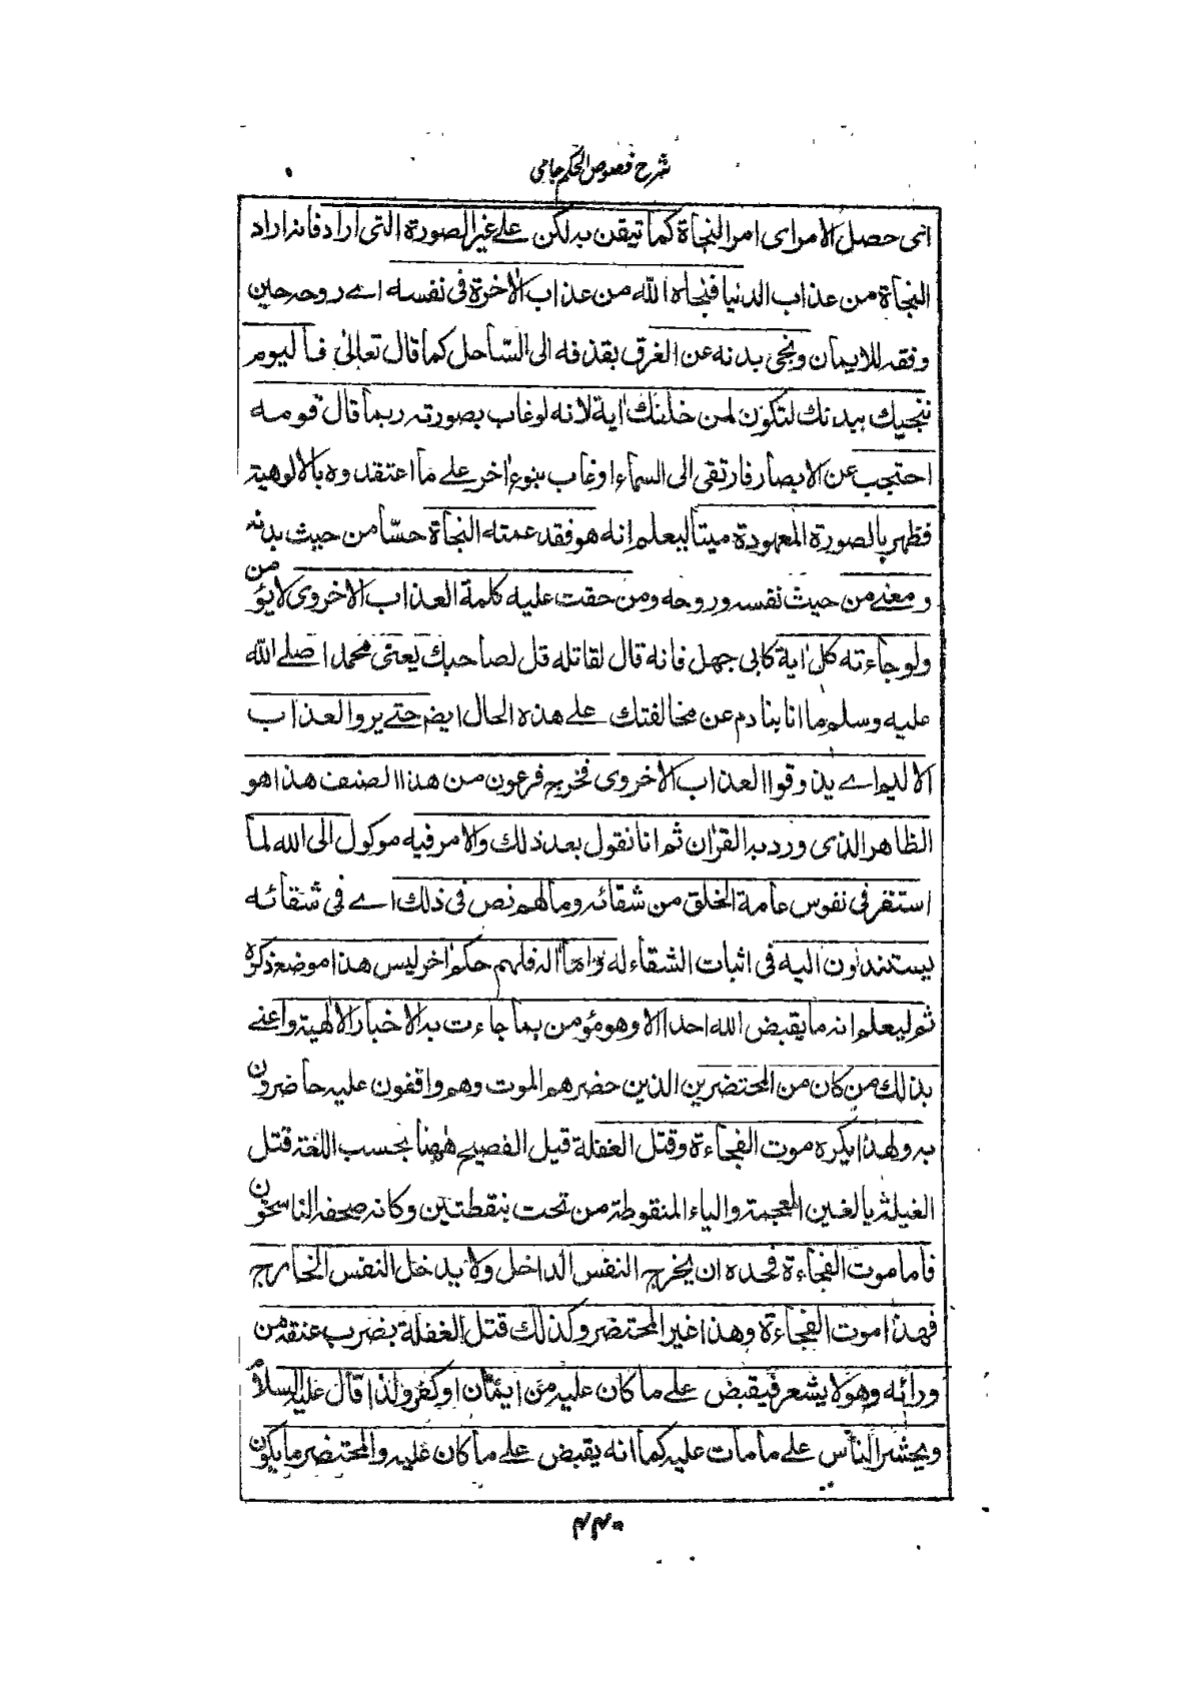 شرح فصوص الحكم جامى
اى حصل الامر اى امر النجاة كما تيقن به لكن على غير الصورة التى اراد فانه اراد
النجاة من عذاب الدنيا فنجاه الله من عذاب الاخرة فى نفسه اے روحه حين
وفقه للايمان ونجى بدنه عن الغرق بقذفه الى الساحل كما قال تعالىٰ فاليوم
ننجيك ببدنك لتكون لمن خلفك اٰية لانه لو غاب بصورته ربما قال قومه
احتجب عن الابصار فارتقى الى السماء او غاب بنوع اٰخر على ما اعتقدوه بالالوهية
فظهر بالصورة المعهودة ميتا ليعلم انه هو فقد عمته النجاة حسّا من حيث بدنه
ومعنے من حيث نفسه وروحه ومن حقت عليه كلمة العذاب الاخروى لا يؤمن
ولو جاءته كل اٰية كابى جهل فانه قال لقاتله قل لصاحبك يعنى محمدا صلے الله
عليه وسلم ما انا بنادم عن مخالفتك علے هذه الحال ايضا حتے يروا العذاب
الاليم اے يذوقوا العذاب الاخروى فخرج فرعون من هذا الصنف هذا هو
الظاهر الذى ورد به القراٰن ثم انا نقول بعد ذلك والامر فيه موكول الى الله لما
استقر فى نفوس عامة الخلق من شقائه وما لهم نص فى ذلك اے فى شقائه
يستندون اليه فى اثبات الشقاء له واما اٰله فلهم حكم اٰخر ليس هذا موضع ذكره
ثم ليعلم انه ما يقبض الله احدا الا وهو مؤمن بما جاءت به الاخبار الالٰهية واعنے
بذلك من كان من المحتضرين الذين حضرهم الموت وهم واقفون عليه حاضرون
به ولهذا يكره موت الفجاءة وقتل الغفلة قيل الفصيح ههنا بحسب اللغة قتل
الغيلة بالغين المعجمة والياء المنقوطة من تحت بنقطتين وكانه صحفه الناسخون
فاما موت الفجاءة فحده ان يخرج النفس الداخل ولا يدخل النفس الخارج
فهذا موت الفجاءة وهذا غير المحتضر وكذلك قتل الغفلة بضرب عنقه من
ورائه وهو لا يشعر فيقبض على ما كان عليه من ايمان او كفر ولذا قال عليه السلام
ويحشر الناس على ما مات عليه كما انه يقبض على ما كان عليه والمحتضر ما يكون
۴۴۰